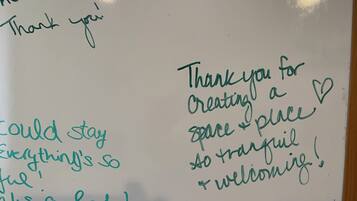 Thank you!
Thank you for
creating a
space + place
so tranquil
+ welcoming!
could stay
Everything's so
ful!